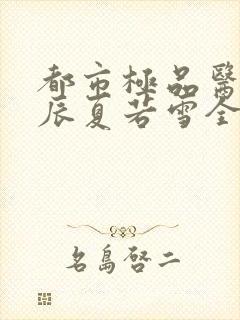 都市極品醫
辰夏若雪全
名島啓二